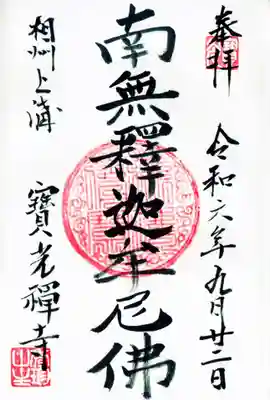 奉拝
令和六年九月廿二日
南無釋迦牟尼佛
相州上溝
寶光禪寺